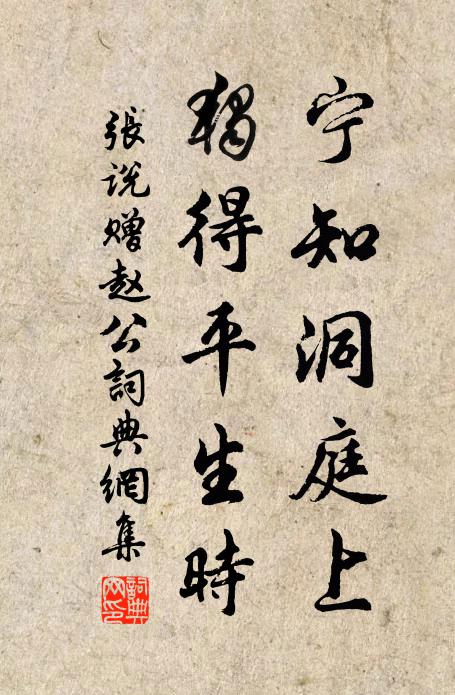 宁知洞庭上
獨得平生時
張说赠赵公詞典網集
詞典网印